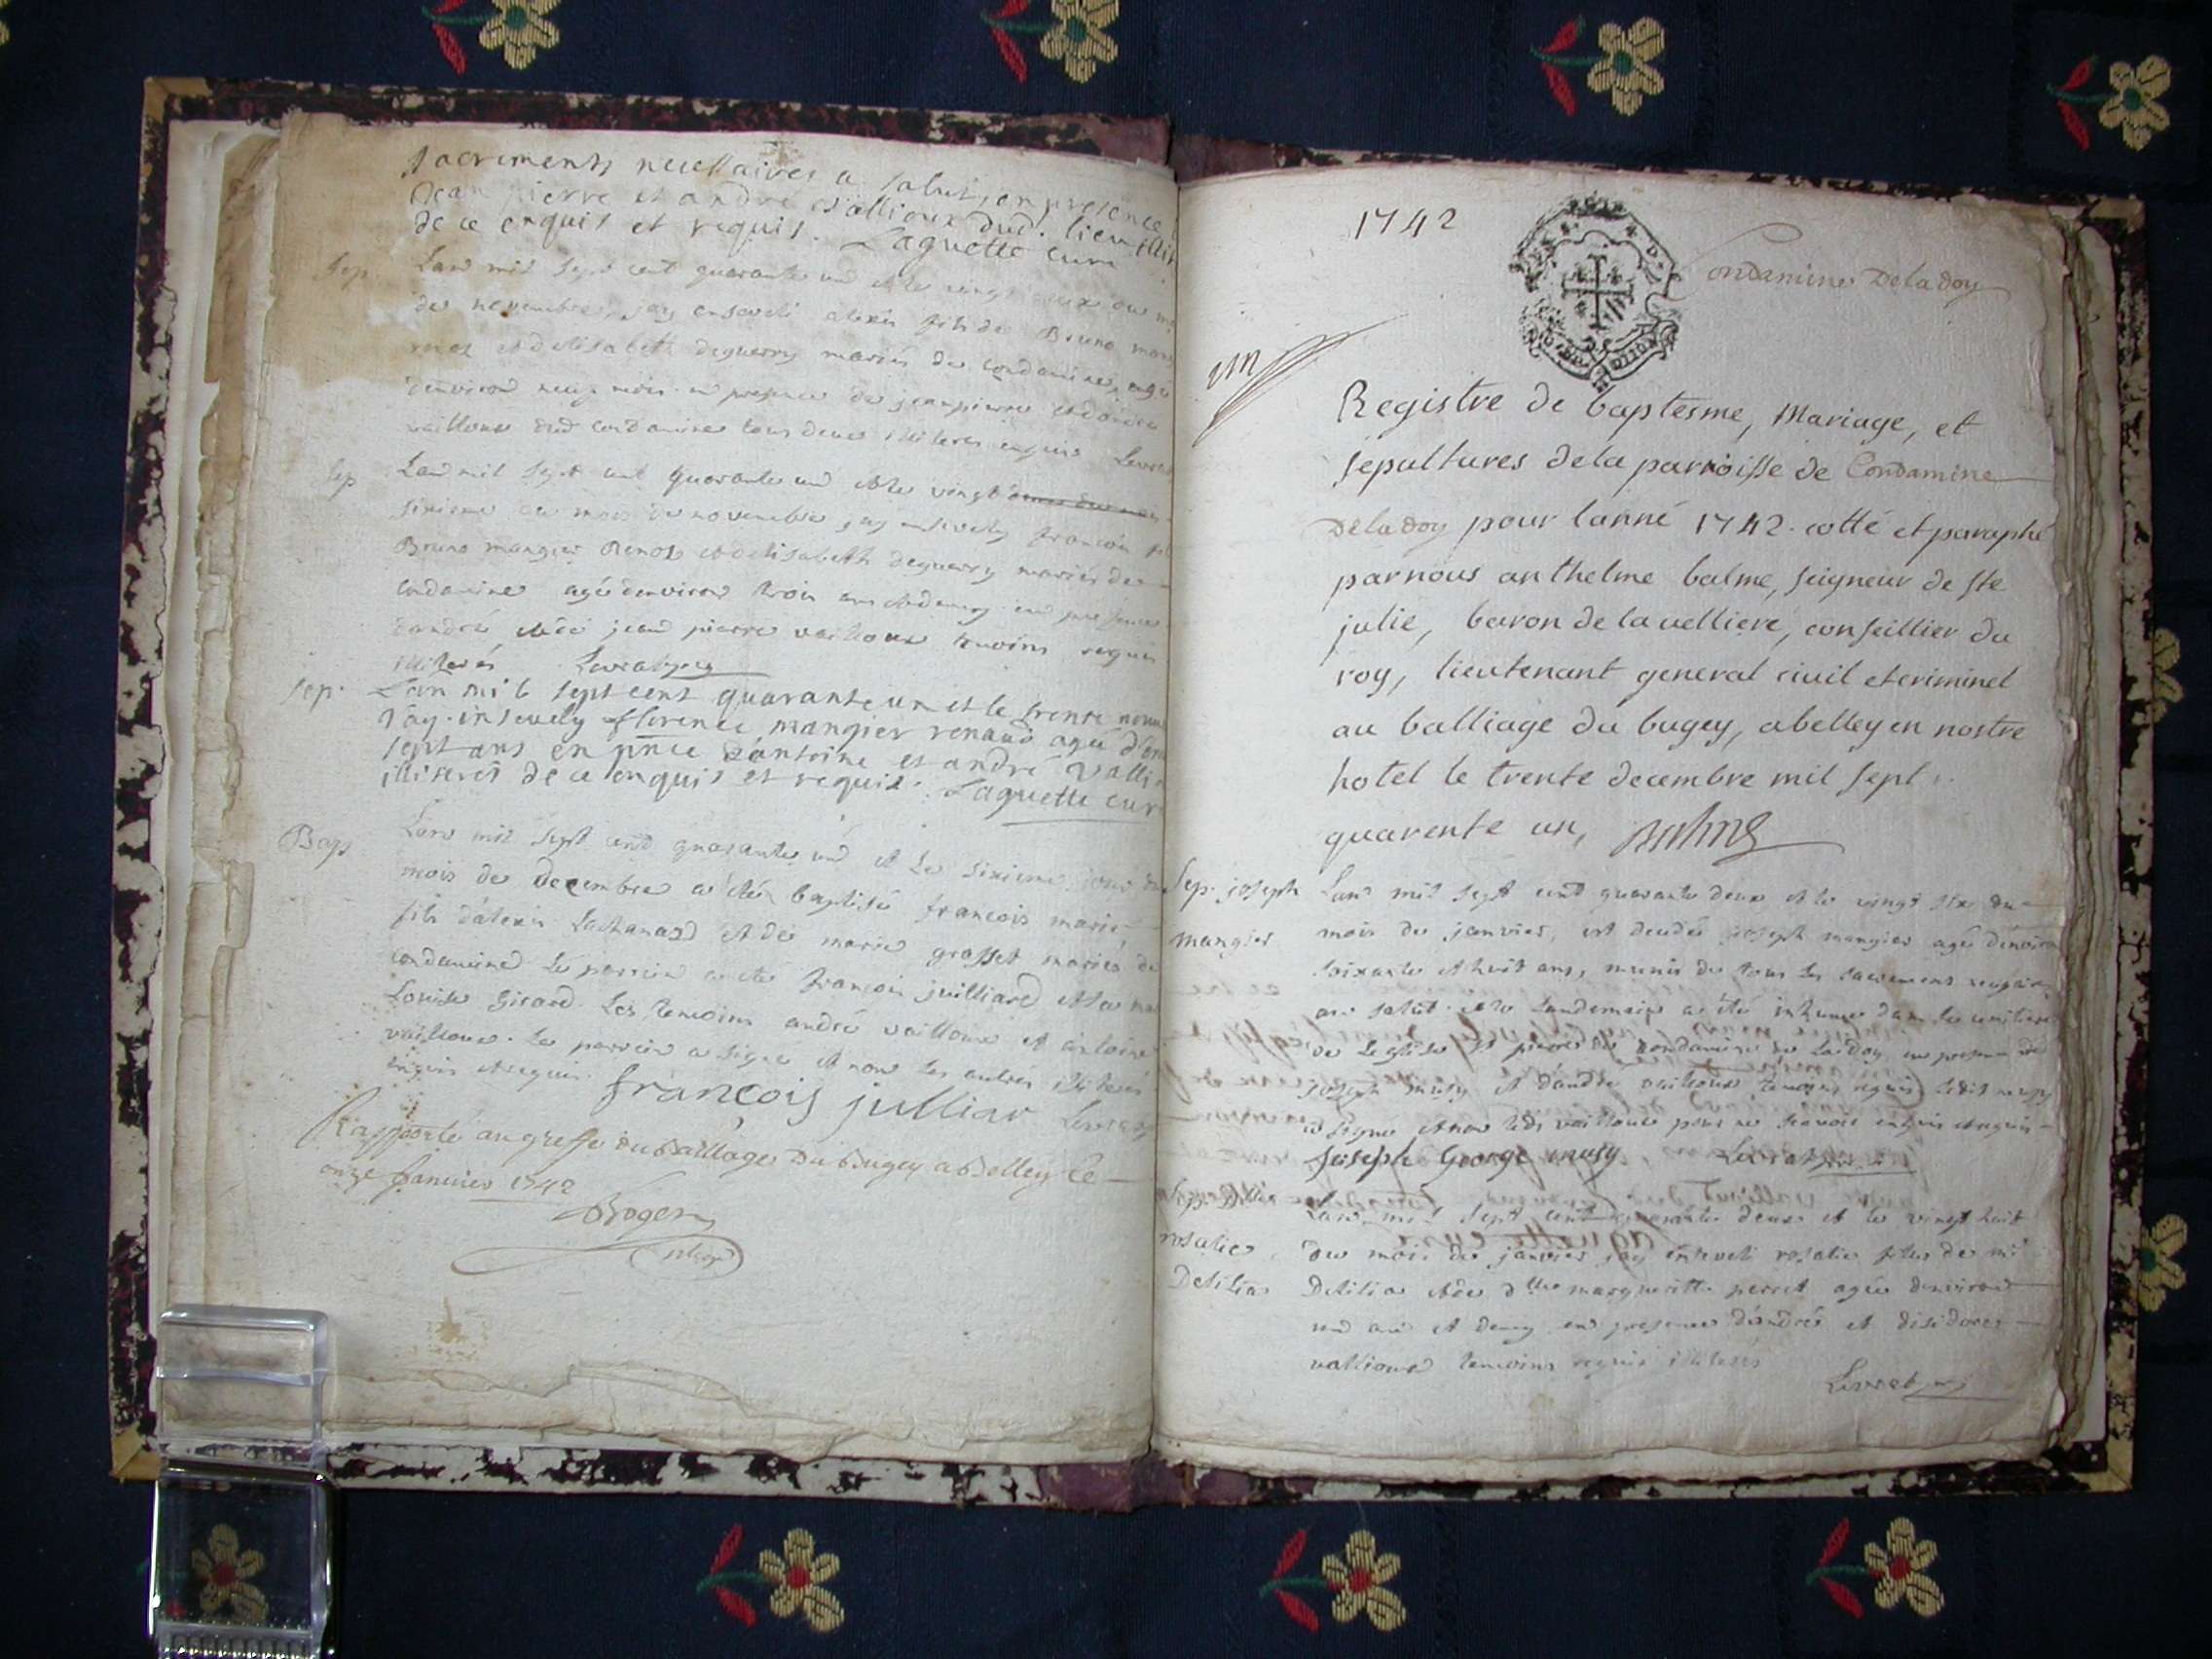 sacrements necessaires a salut, en presence
Jean pierre et andré vallioux dud. lieu illit
de ce enquis et requis. Laguette cure
Sep. Lan mil sept cent quarante un et le vingt deux du
de novembre, jay enseveli alexis fils de Bruno man
renos et delisabeth deguerry mariés de condamine, agé
denviron neuf mois en presence de jean pierre et dandré
vailloux dud condamine tous deux illiteres enquis Levrat
Sep Lan mil sept cent quarante un et le vingt
sixieme du mois de novembre jay ensevely francois fi
Bruno mangier Renos et delisabeth deguerry mariés de
condamine agé denviron trois ans et demy en presence
dandré et de jean pierre vailloux temoins requis
illiterés Levrat
Sep. Lan mil sept cent quarante un et le trente nov
Jay insevely florence mangier renaud agée d'en
sept ans en pnce dantoine et andré Valli
illiterés de ce enquis et requis. Laguette cur
Bap Lan mil sept cent quarante un et le sixieme jour du
mois de decembre a été baptisé francois marie
fils d'alexis et de marie grosset mariés de
condamine le parrein a été francois juilliard et la ma
Louise Girard. Les temoins andré vailloux et antoine
vailloux. le parrein a signé et non les autres illiterés
enquis et requis. françois julliar Levrat
Rapporté au greffe du Bailliage du Bugey a Belley le
onze Janvier 1742
Roger
1742
Condamine Deladoy
un
Registre de baptesme, Mariage, et
sepultures de la parroisse de Condamine
Deladoy pour lanné 1742. cotté et paraphé
par nous anthelme balme, seigneur de ste
julie, baron de la velliere, conseillier du
roy, lieutenant general civil et criminel
au balliage du bugey, a belley en nostre
hotel le trente decembre mil sept
quarente un, Balme
Sep. joseph Lan mil sept cent quarante deux et le vingt six du
mangier mois de janvier, est decedé joseph mangier agé denviron
soixante et huit ans, munis de tous les sacrements requis
au salut et le landemain a été inhumé dans le cimitiere
de Leglise St pierre de Condamine de Ladoy en presence de
joseph musy et d'andre vailloux temoins requis ledit musy
a signé et non ledt vailloux pour ne scavoir enquis et requis
joseph George musy Levrat
Sep. Dlle Lan mil sept cent quarante deux et le vingt huit
rosalie du mois de janvier jay enseveli rosalie fille de mr
Delilia Delilia et de dlle margueritte perret agée denviron
un an et demy en presence d'andré et disidore
vallioux temoins requis illiterés
Levrat